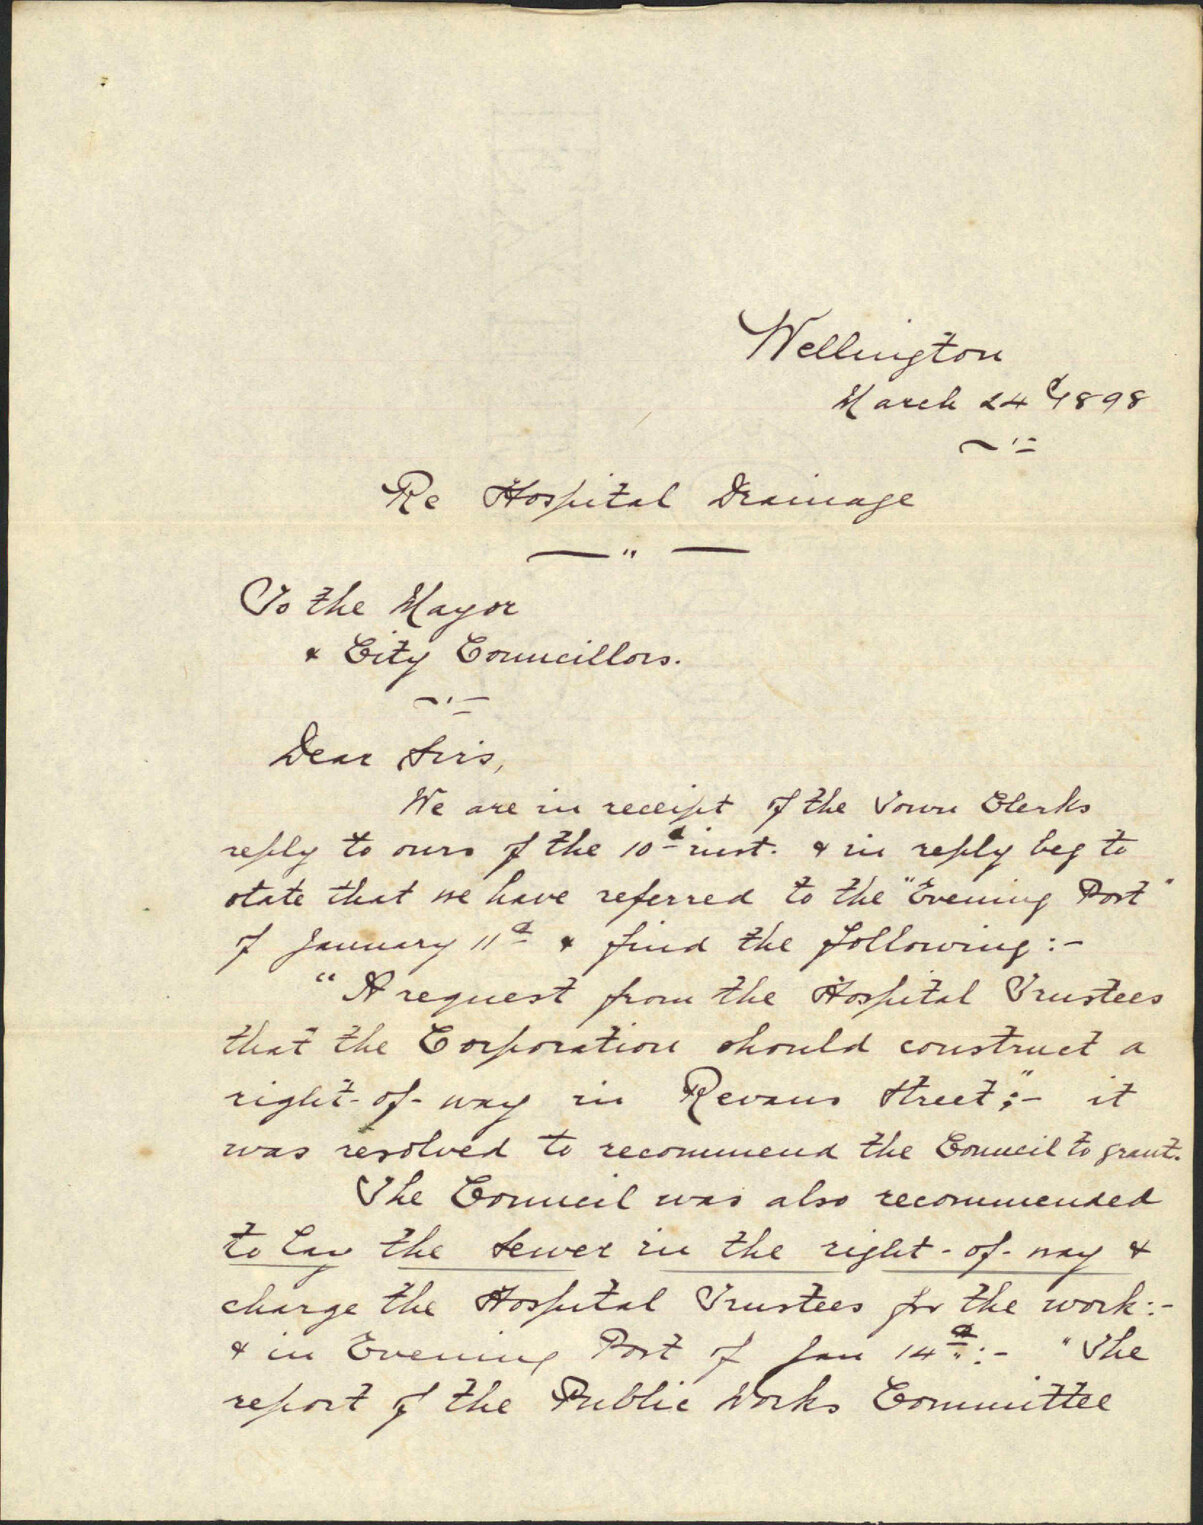 Wellington
March 24th/1898
Re Hospital Drainage
To the Mayor
& City Councillors.
Dear Sirs,
We are in receipt of the Town Clerks
reply to ours of the 10th inst. & in reply beg to
state that we have referred to the "Evening Post"
of January 11th & find the following:-
"A request from the Hospital Trustees
that the Corporation should construct a
right-of-way in Revans Street";- it
was resolved to recommend the Council to grant.
The Council was also recommended
to lay the sewer in the right-of-way &
charge the Hospital Trustees for the work:-
& in Evening Post of Jan 14th:- "The
report of the Public Works Committee